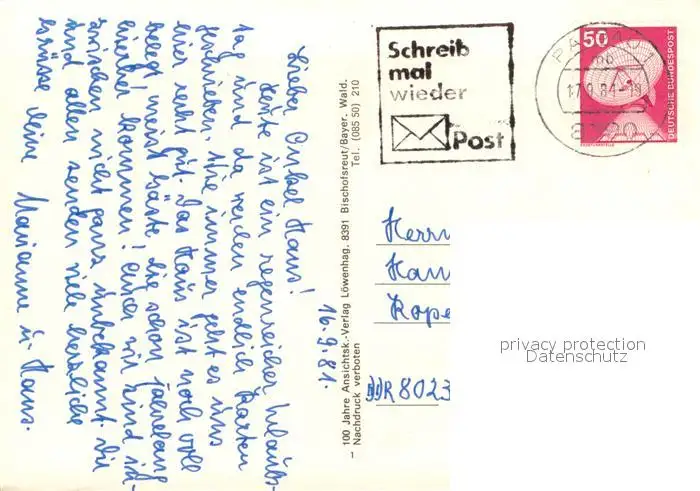 16.9.81.
Lieber Onkel Hans!
Heute ist ein regenreicher Urlaubs-
tag und da werden endlich Karten
geschrieben. Wie immer geht es uns
hier recht gut. Das Haus ist noch voll
belegt, meist Gäste, die schon jahrelang
hierher kommen! Auch wir sind in-
zwischen nicht ganz unbekannt. Dir
und allen senden viele herzliche
Grüsse deine Marianne u. Hans.
100 Jahre Ansichtsk.-Verlag Löwenhag, 8391 Bischofsreut/Bayer. Wald.
Nachdruck verboten Tel. (085 50) 210
1
Schreib
mal
wieder
Post
50
DEUTSCHE BUNDESPOST
Herrn
Han
Kope
DDR 8023
privacy protection
Datenschutz